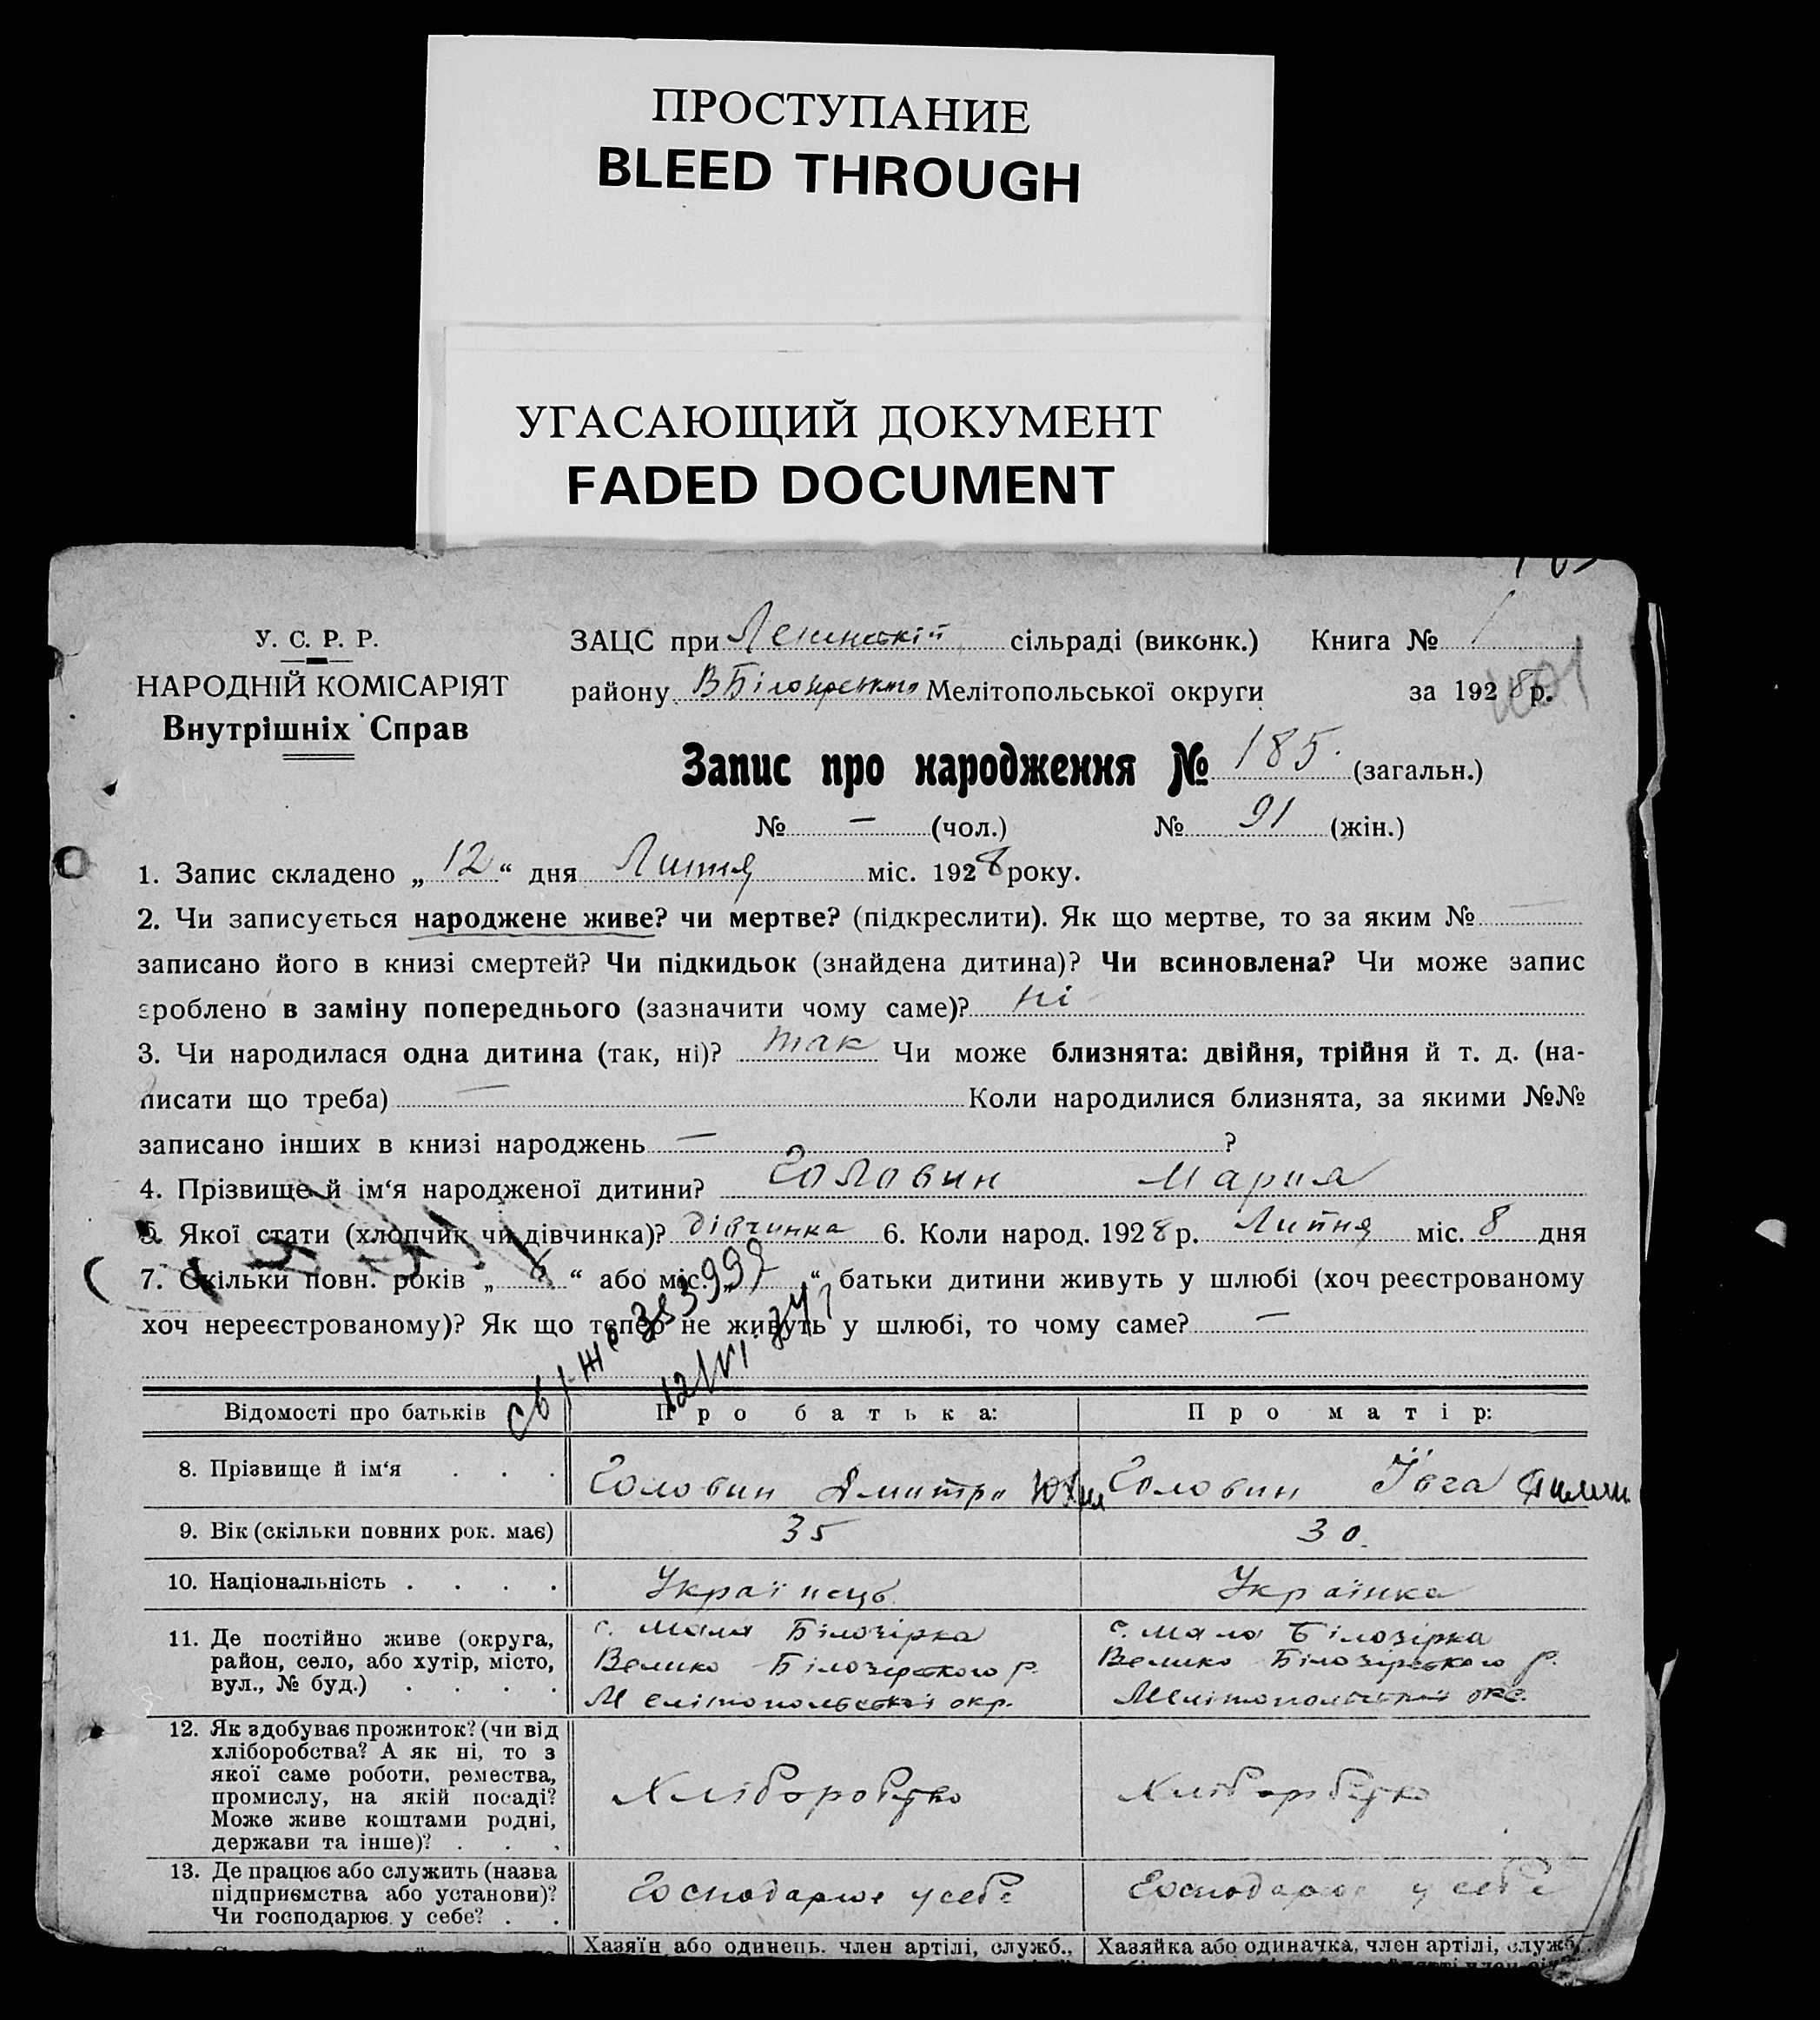 ПРОСТУПАНИЕ
BLEED THROUGH
УГАСАЮЩИЙ ДОКУМЕНТ
FADED DOCUMENT
У. С. Р. Р.
НАРОДНІЙ КОМІСАРІЯТ
Внутрішніх Справ
ЗАЦС при Ленинській сільраді (виконк.) Книга № 1
району ВБілозірського Мелітопольської округи за 1928 р.
Запис про народження № 185. (загальн.)
№ — (чол.) № 91 (жін.)
1. Запис складено „12“ дня Липня міс. 1928 року.
2. Чи записується народжене живе? чи мертве? (підкреслити). Як що мертве, то за яким № —
записано його в книзі смертей? Чи підкидьок (знайдена дитина)? Чи всиновлена? Чи може запис
зроблено в заміну попереднього (зазначити чому саме)? ні
3. Чи народилася одна дитина (так, ні)? так Чи може близнята: двійня, трійня й т. д. (на-
писати що треба) — Коли народилися близнята, за якими №№
записано інших в книзі народжень — ?
4. Прізвище й ім‘я народженої дитини? Головин Мария
5. Якої стати (хлопчик чи дівчинка)? дівчинка 6. Коли народ. 1928 р. Липня міс. 8 дня
7. Скільки повн. років „ “ або міс. „ “ батьки дитини живуть у шлюбі (хоч реєстрованому
хоч нереєстрованому)? Як що тепер не живуть у шлюбі, то чому саме? —
Відомості про батьків Про батька: Про матір:
8. Прізвище й ім‘я . . . Головин Дмитро Головин Ївга
9. Вік (скільки повних рок. має) 35 30.
10. Національність . . . . Українець Українка
11. Де постійно живе (округа,
район, село, або хутір, місто,
вул., № буд.) . . . .
с. Мала Білозірка
Велико Білозірського р.
Мелітопольської окр.
с. Мала Білозірка
Велико Білозірського р.
Мелітопольської окр.
12. Як здобуває прожиток? (чи від
хліборобства? А як ні, то з
якої саме роботи, ремества,
промислу, на якій посаді?
Може живе коштами родні,
держави та інше)? . . .
Хліборобство
Хліборобство
13. Де працює або служить (назва
підприємства або установи)?
Чи господарює у себе? . .
Господарює у себе
Господарює у себе
Хазяїн або одинець, член артілі, служб., Хазяйка або одиначка, член артілі, служб.,